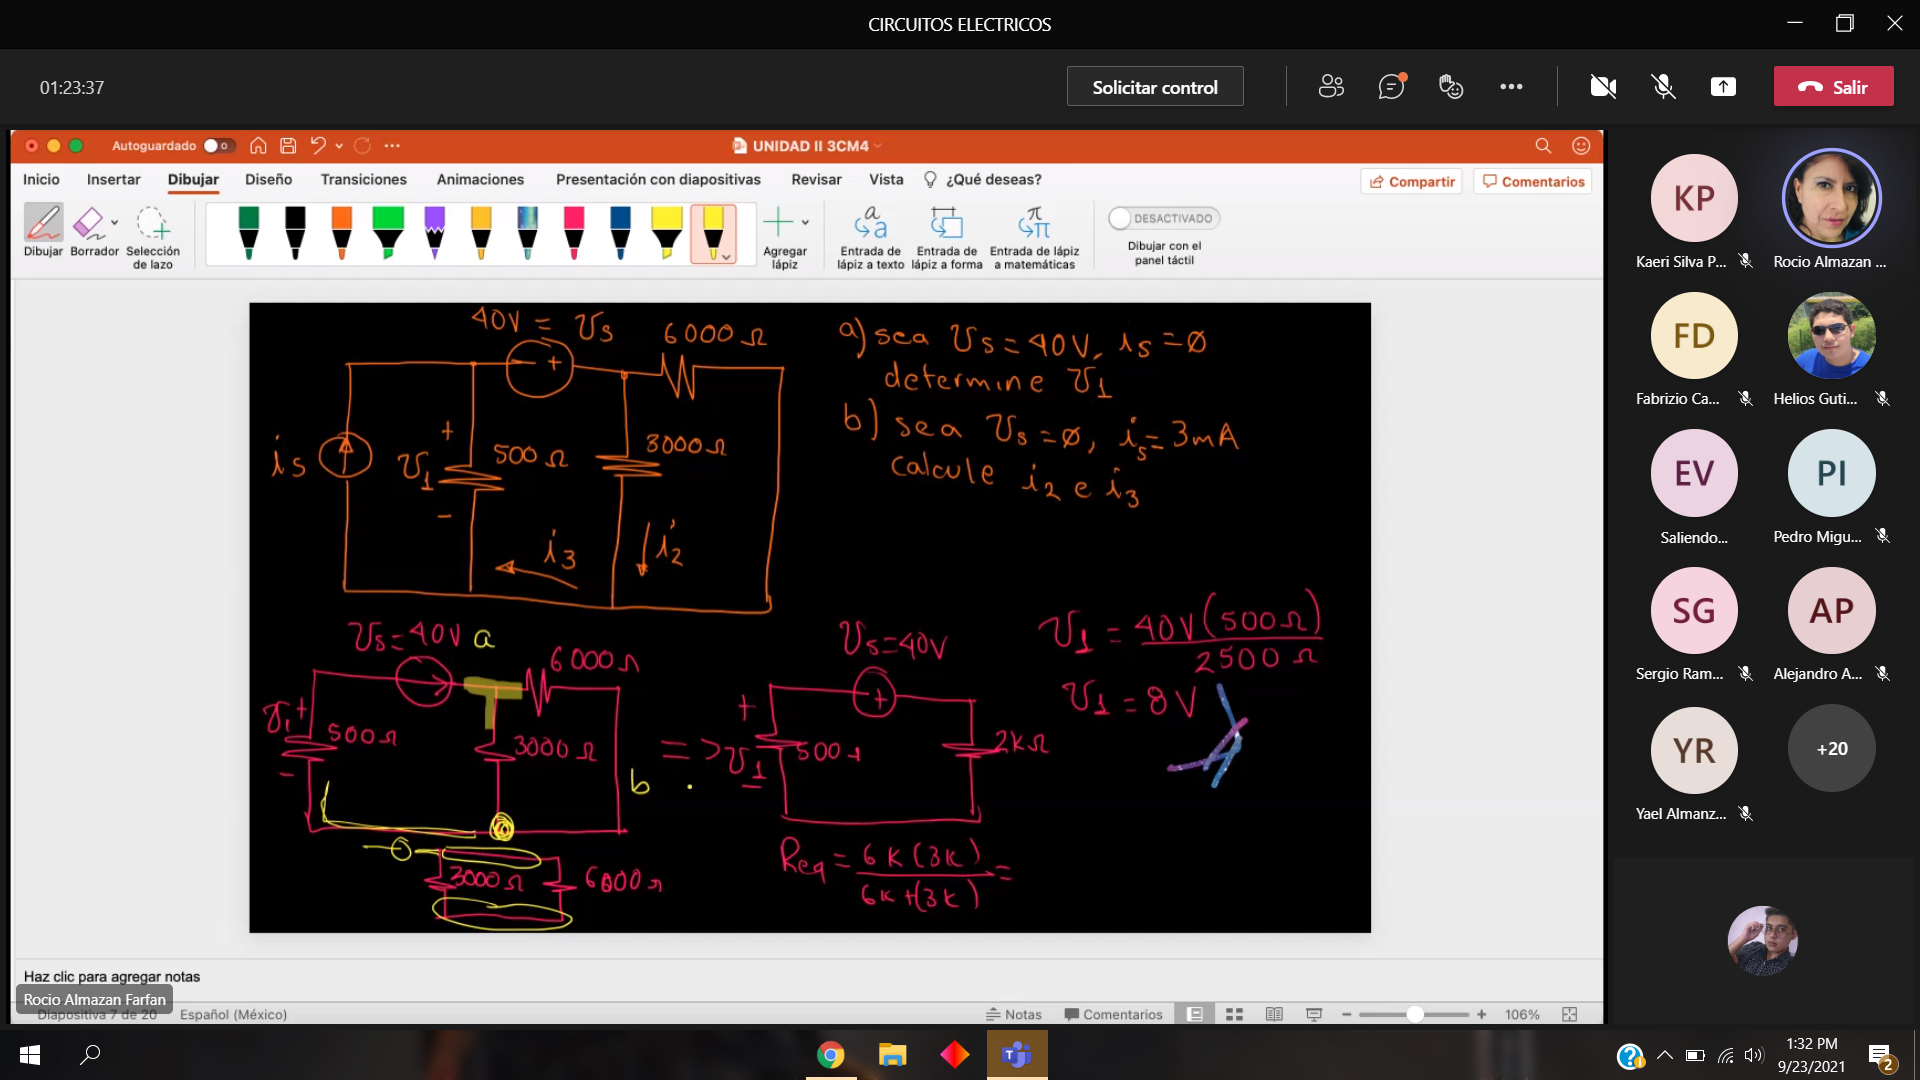 CIRCUITOS ELECTRICOS
01:23:37
Solicitar control
Salir
Autoguardado
UNIDAD II 3CM4
Inicio Insertar Dibujar Diseño Transiciones Animaciones Presentación con diapositivas Revisar Vista ¿Qué deseas?
Compartir Comentarios
Dibujar
Borrador
Selección
de lazo
Agregar
lápiz
Entrada de
lápiz a texto
Entrada de
lápiz a forma
Entrada de lápiz
a matemáticas
DESACTIVADO
Dibujar con el
panel táctil
40V = Vs
6000 Ω
is
+
V1
-
500 Ω
- +
3000 Ω
i3
i2
a) sea Vs = 40V, is = ∅
determine V1
b) sea Vs = ∅, is = 3mA
calcule i2 e i3
Vs = 40V a
6000 Ω
V1 +
-
500 Ω
3000 Ω
b
3000 Ω
6000 Ω
=>
Vs = 40V
+
V1
-
500
+
2KΩ
Req = 6K(3K) =
6K+(3K)
V1 = 40V(500Ω)
2500 Ω
V1 = 8V
Haz clic para agregar notas
Rocio Almazan Farfan
Diapositiva 7 de 20 Español (México)
Notas Comentarios 106%
KP
Kaeri Silva P...
Rocio Almazan ...
FD
Fabrizio Ca...
Helios Guti...
EV
Saliendo...
PI
Pedro Migu...
SG
Sergio Ram...
AP
Alejandro A...
YR
Yael Almanz...
+20
1:32 PM
9/23/2021
2